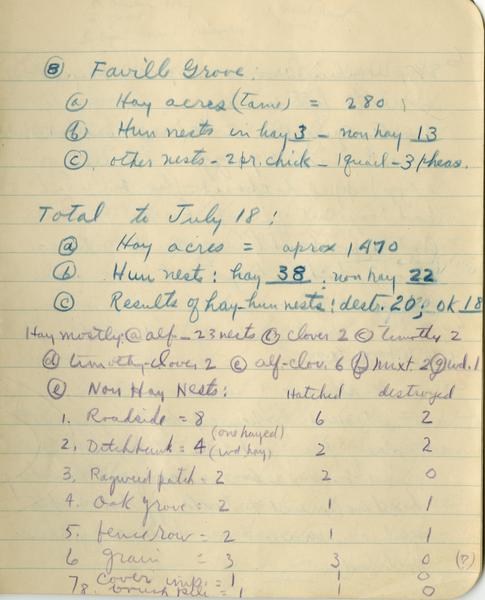 (8) Faville Grove:
(a) Hay acres (Tame) = 280
(b) Hun nests in hay 3 - non hay 13
(c) other nests - 2 pr. chick - 1 quail - 3 pheas.
Total to July 18:
(a) Hay acres = aprox 1470
(b) Hun nests: hay 38; non hay 22
(c) Results of hay-hun nests: dest. 20; OK 18
Hay mostly (a) alf - 23 nests (b) clover 2 (c) timothy 2
(d) timothy-clover 2 (e) alf-clov. 6 (f) mixt 2 (g) wd. 1
(e) Non Hay Nests: Hatched destroyed
1. Roadside = 8 (one hayed) 6 2
2. Ditchbank = 4 (wd hay) 2 2
3. Ragweed patch = 2 2 0
4. Oak grove = 2 1 1
5. fence row = 2 1 1
6 grain = 3 3 0 (?)
7 Cover imp. = 1 1 0
8. brush pile = 1 1 0